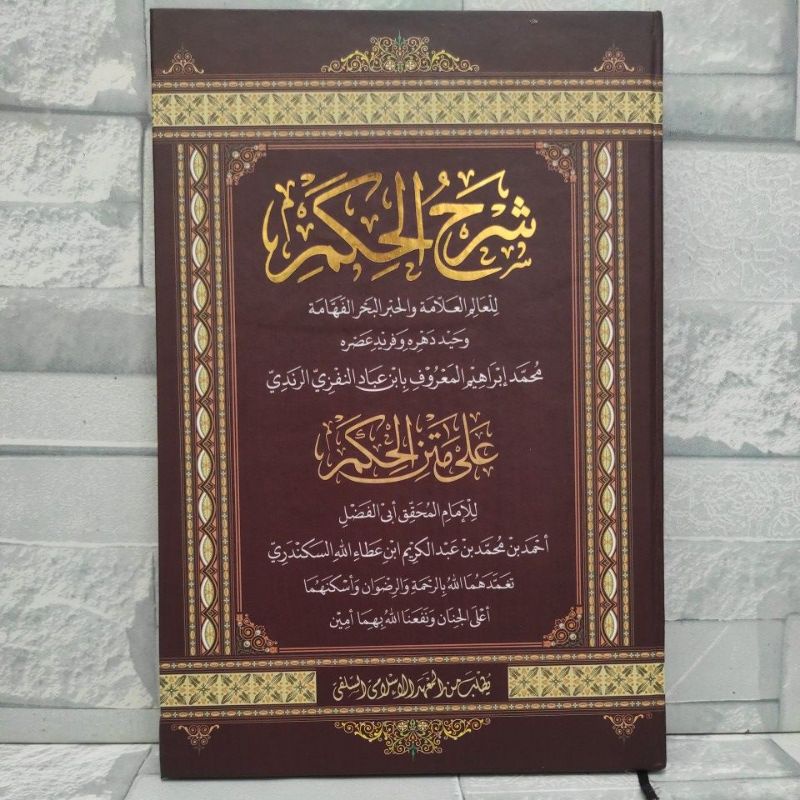 شَرْحُ الْحِكَمِ
لِلْعَالِمِ الْعَلَّامَةِ وَالْحَبْرِ الْبَحْرِ الْفَهَّامَةِ
وَحِيْدِ دَهْرِهِ وَفَرِيْدِ عَصْرِهِ
مُحَمَّد إِبْرَاهِيْم الْمَعْرُوْفِ بِابْنِ عَبَادِ النَّفَزِيِّ الرَّنْدِيّ
عَلَى مَتْنِ الْحِكَمِ
لِلْإِمَامِ الْمُحَقِّقِ أَبِى الْفَضْلِ
أَحْمَدَ بْنِ مُحَمَّد بْنِ عَبْدِ الْكَرِيْمِ ابْنِ عَطَاءِ اللهِ السَّكَنْدَرِيّ
تَغَمَّدَهُمَا اللهُ بِالرَّحْمَةِ وَالرِّضْوَانِ وَأَسْكَنَهُمَا
أَعْلَى الْجِنَانِ وَنَفَعَنَا اللهُ بِهِمَا أَمِيْن
يطلب من المعهد الإسلامى السلفى